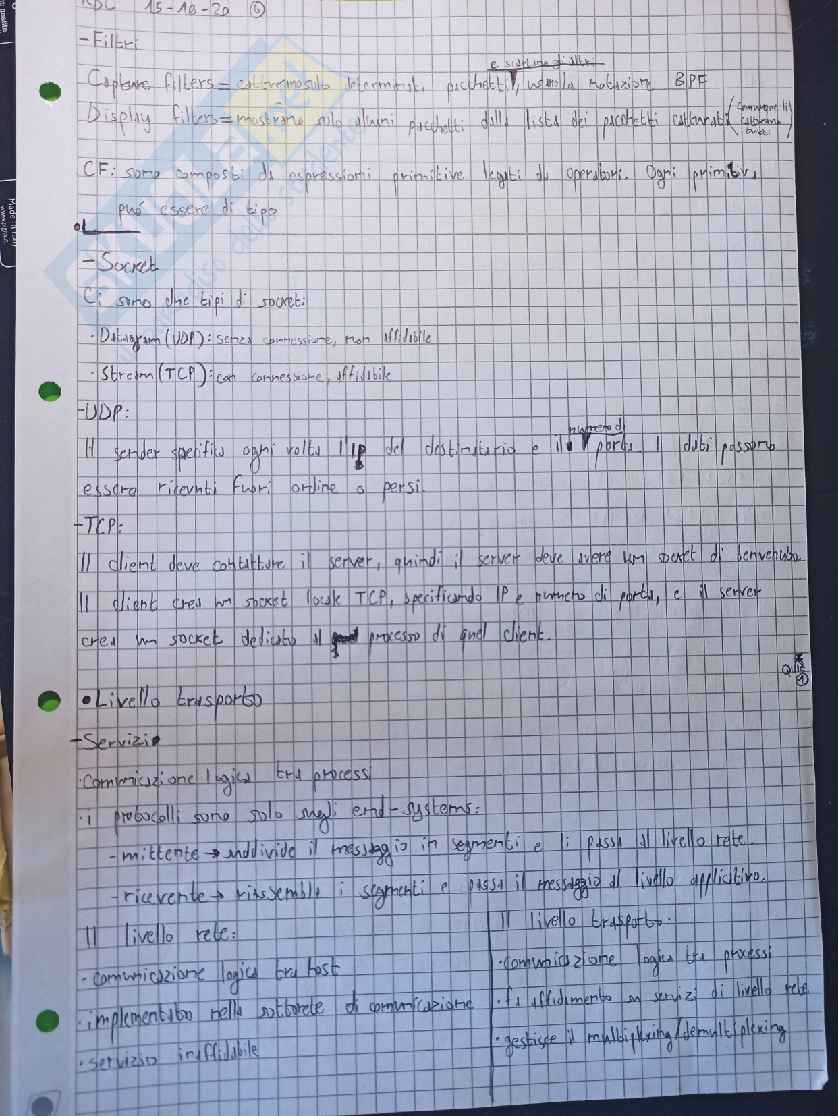 RDC 15-10-20 ⑥
-Filtri
Capture filters = catturano solo determinati pacchetti, usano la notazione BPF
Display filters = mostrano solo alcuni pacchetti dalla lista dei pacchetti catturati
CF: sono composti da espressioni primitive legati da operatori. Ogni primitiva
può essere di tipo
-Socket
Ci sono due tipi di socket:
·Datagram (UDP): senza connessione, non affidabile
·Stream (TCP): con connessione, affidabile
-UDP:
numero di
Il sender specifica ogni volta l'IP del destinatario e il porta. I dati possono
essere ricevuti fuori ordine o persi.
-TCP:
Il client deve contattare il server, quindi il server deve avere un socket di benvenuto.
Il client crea un socket locale TCP, specificando IP e numero di porta, e il server
crea un socket dedicato al processo di quel client.
•Livello trasporto
-Servizi
·comunicazione logica tra processi
·i protocolli sono solo sugli end-systems:
-mittente → suddivide il messaggio in segmenti e li passa al livello rete.
-ricevente → riassembla i segmenti e passa il messaggio al livello applicativo.
Il livello rete:
·comunicazione logica tra host
·implementato nella sottorete di comunicazione
·servizio inaffidabile
Il livello trasporto:
·comunicazione logica tra processi
·fa affidamento su servizi di livello rete
·gestisce il multiplexing/demultiplexing